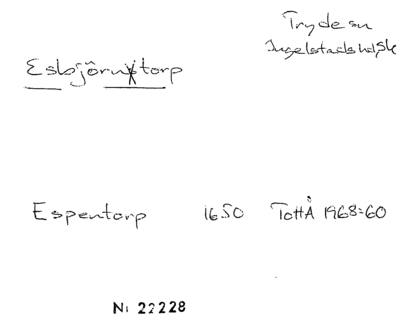 Tryde sn
Ingelstads hd, Sk
Esbjörntorp
Espentorp 1650 TottÅ 1968:60
N: 22228